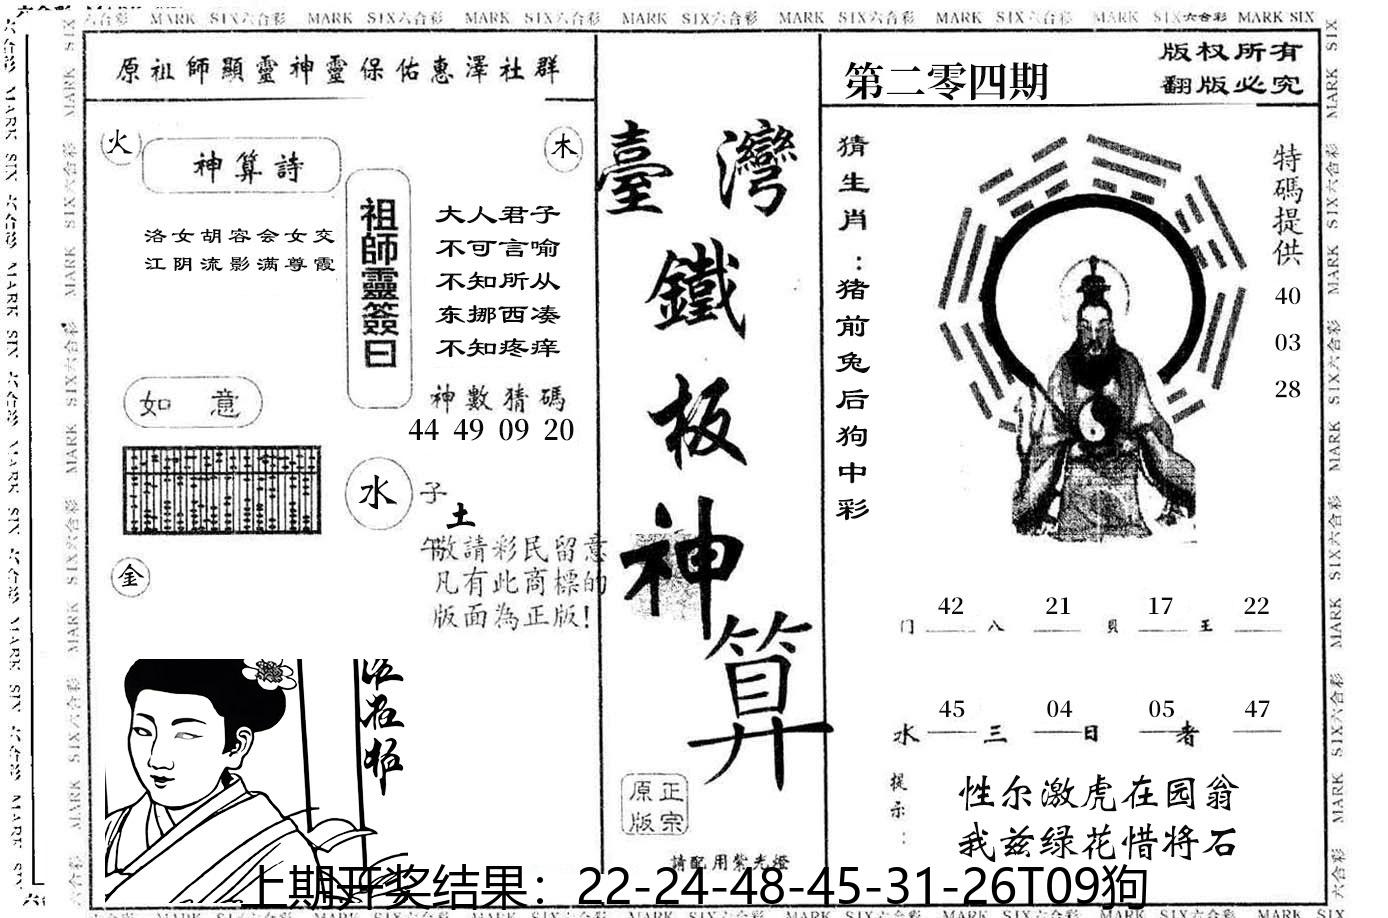 MARK SIX六合彩 MARK SIX六合彩 MARK SIX六合彩 MARK SIX六合彩 MARK SIX六合彩 MARK SIX六合彩 MARK SIX六合彩 MARK SIX
原祖師顯靈神靈保佑惠澤社群
火
木
神算詩
洛女胡容会女交
江阴流影满尊霞
祖師靈簽曰
大人君子
不可言喻
不知所从
东挪西凑
不知疼痒
神數猜碼
44 49 09 20
如意
水
子
土
午
金
敬請彩民留意
凡有此商標的
版面為正版!
臺灣
鐵
板
神
算
原正
版宗
請配用紫光燈
第二零四期
版权所有
翻版必究
猜生肖:猪前兔后狗中彩
特碼提供
40
03
28
42 21 17 22
门 八 貝 王
45 04 05 47
水 三 日 者
提示:
性尔激虎在园翁
我兹绿花惜将石
上期开奖结果：22-24-48-45-31-26T09狗